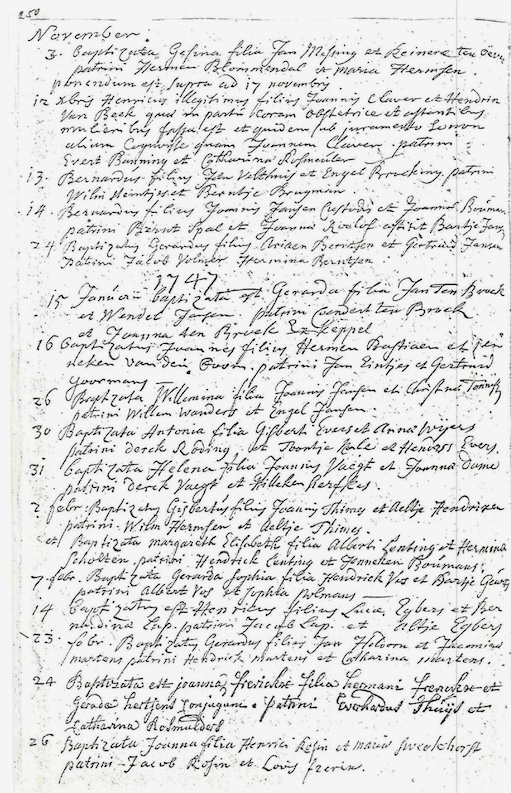 250
November.
3. baptizata Gesina filia Jan Messing et Reinera ten
patrini Hermen Blommendal et maria Hermsen.
ponendum est supra ad 17 novembris
12 Xbris Henricus illegitimus filius Joannis Claver et Hendrin
Van Beek quae in partu coram obstetrice et astantibus
mulieribus fassa est et quidem sub juramento se non
alium cognovisse quam Joannem Claver. patrini
Evert Banning et Catharina Rosmeuler
13. Bernardus filius Jan Velthuis et Engel patrini
Wilm Heintjes et Berntje Brugman
14. Bernardus filius Joannis Jansen Custodis et Joanna Bouman
patrini Bernt Spal et Joanna Roelof astitit Bartje Jans
24 Baptizatus Gerardus filius Ariaen Berntsen et Gertrud Jansen
Patrini Jacob Volmer Hermina Berntsen
1747
15 Januarii baptizata est Gerarda filia Jan Ten Broek
et Wendel Jansen. patrini Coendert ten Broek
et Joanna ten Broek Ex Keppel
16 baptizatus Joannes filius Hermen Bastiaen et Jen
neken van den patrini Jan Eintjes et Gertruid
Goormans
26 Baptizata Willemina filia Joannis Jansen et Christina
patrini Willem Wanders et Engel Jansen.
30 Baptizata Antonia filia Gisbert Evers et Anna Wijers
patrini derck Roding, et et Hendrs Evers.
31 baptizata Helena filia Joannis Vaegt et Joanna Dame
patrini derck Vaegt et Willeken
2 febr. Baptizatus Gisbertus filius Joannis Thimes et Aeltje Hendrixen
patrini. Wilm Hermsen et Aeltje Thimes
et Baptizata margareth Elisabeth filia Alberti Lenting et Hermina
Scholten. patrini Hendrick Lenting et Jenneken Boumans.
7 febr. Baptizata Gerarda Sophia filia Hendrick Vos et Bartje
patrini Albert Vos et Sophia
14 baptizatus est Henricus filius Luca Eybers et Ber
nardina Lap. patrini Jacob Lap. et Altje Eybers
23. febr. Baptizatus Gerardus filius Jan Heborn et
martens patrini Hendrick martens et Catharina martens.
24 Baptizata est joanna filia hermani et
Gerarda hertjens conjugum. patrini Everhardus Thuijs et
Catharina Rosmulders
26 Baptizata Joanna filia Henrici Rosin et maria
patrini Jacob Rosin et